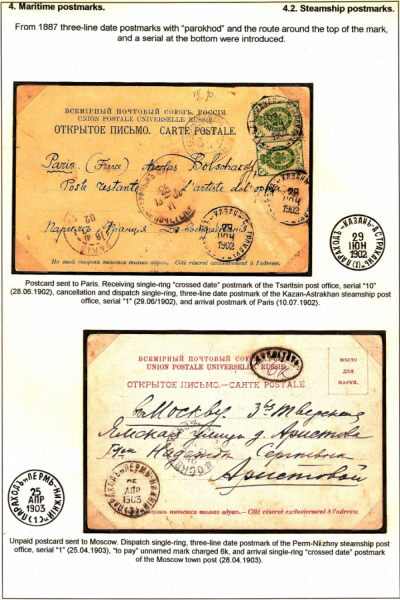 4. Maritime postmarks.
4.2. Steamship postmarks.
From 1887 three-line date postmarks with “parokhod” and the route around the top of the mark,
and a serial at the bottom were introduced.
ВСЕМІРНЫЙ ПОЧТОВЫЙ СОЮЗЪ. РОССІЯ.
UNION POSTALE UNIVERSELLE RUSSIE.
ОТКРЫТОЕ ПИСЬМО. CARTE POSTALE.
Paris (France) Nicolas Bolschakoff
Poste restante l'artiste del'opera
Парижъ Франція До востребованія
29
ІЮН
1902
КАЗАНЬ
На этой сторонѣ пишется только адресъ. Côté réservé exclusivement à l'adresse.
ПАРАХОДЪ КАЗАНЬ-АСТРАХАНЬ
29
ІЮН
1902
(1)
Postcard sent to Paris. Receiving single-ring “crossed date” postmark of the Tsaritsin post office, serial “10”
(28.06.1902), cancellation and dispatch single-ring, three-line date postmark of the Kazan-Astrakhan steamship post
office, serial “1” (29.06/1902), and arrival postmark of Paris (10.07.1902).
ВСЕМІРНЫЙ ПОЧТОВЫЙ СОЮЗЪ. РОССІЯ.
UNION POSTALE UNIVERSELLE. RUSSIE.
ОТКРЫТОЕ ПИСЬМО.—CARTE POSTALE
ДОПЛАТИТЬ
6K
МѢСТО
ДЛЯ
МАРКИ.
въ Москву 3ья Тверская
Ямская улица д. Аристова
Надежда
Аристовой
25
АПР
1903
Côté réservé exclusivement à l'adresse.
ПАРАХОДЪ ПЕРМЬ-НИЖНІЙ
25
АПР
1903
(1)
Unpaid postcard sent to Moscow. Dispatch single-ring, three-line date postmark of the Perm-Niizhny steamship post
office, serial “1” (25.04.1903), “to pay” unnamed mark charged 6k, and arrival single-ring “crossed date” postmark
of the Moscow town post (28.04.1903).